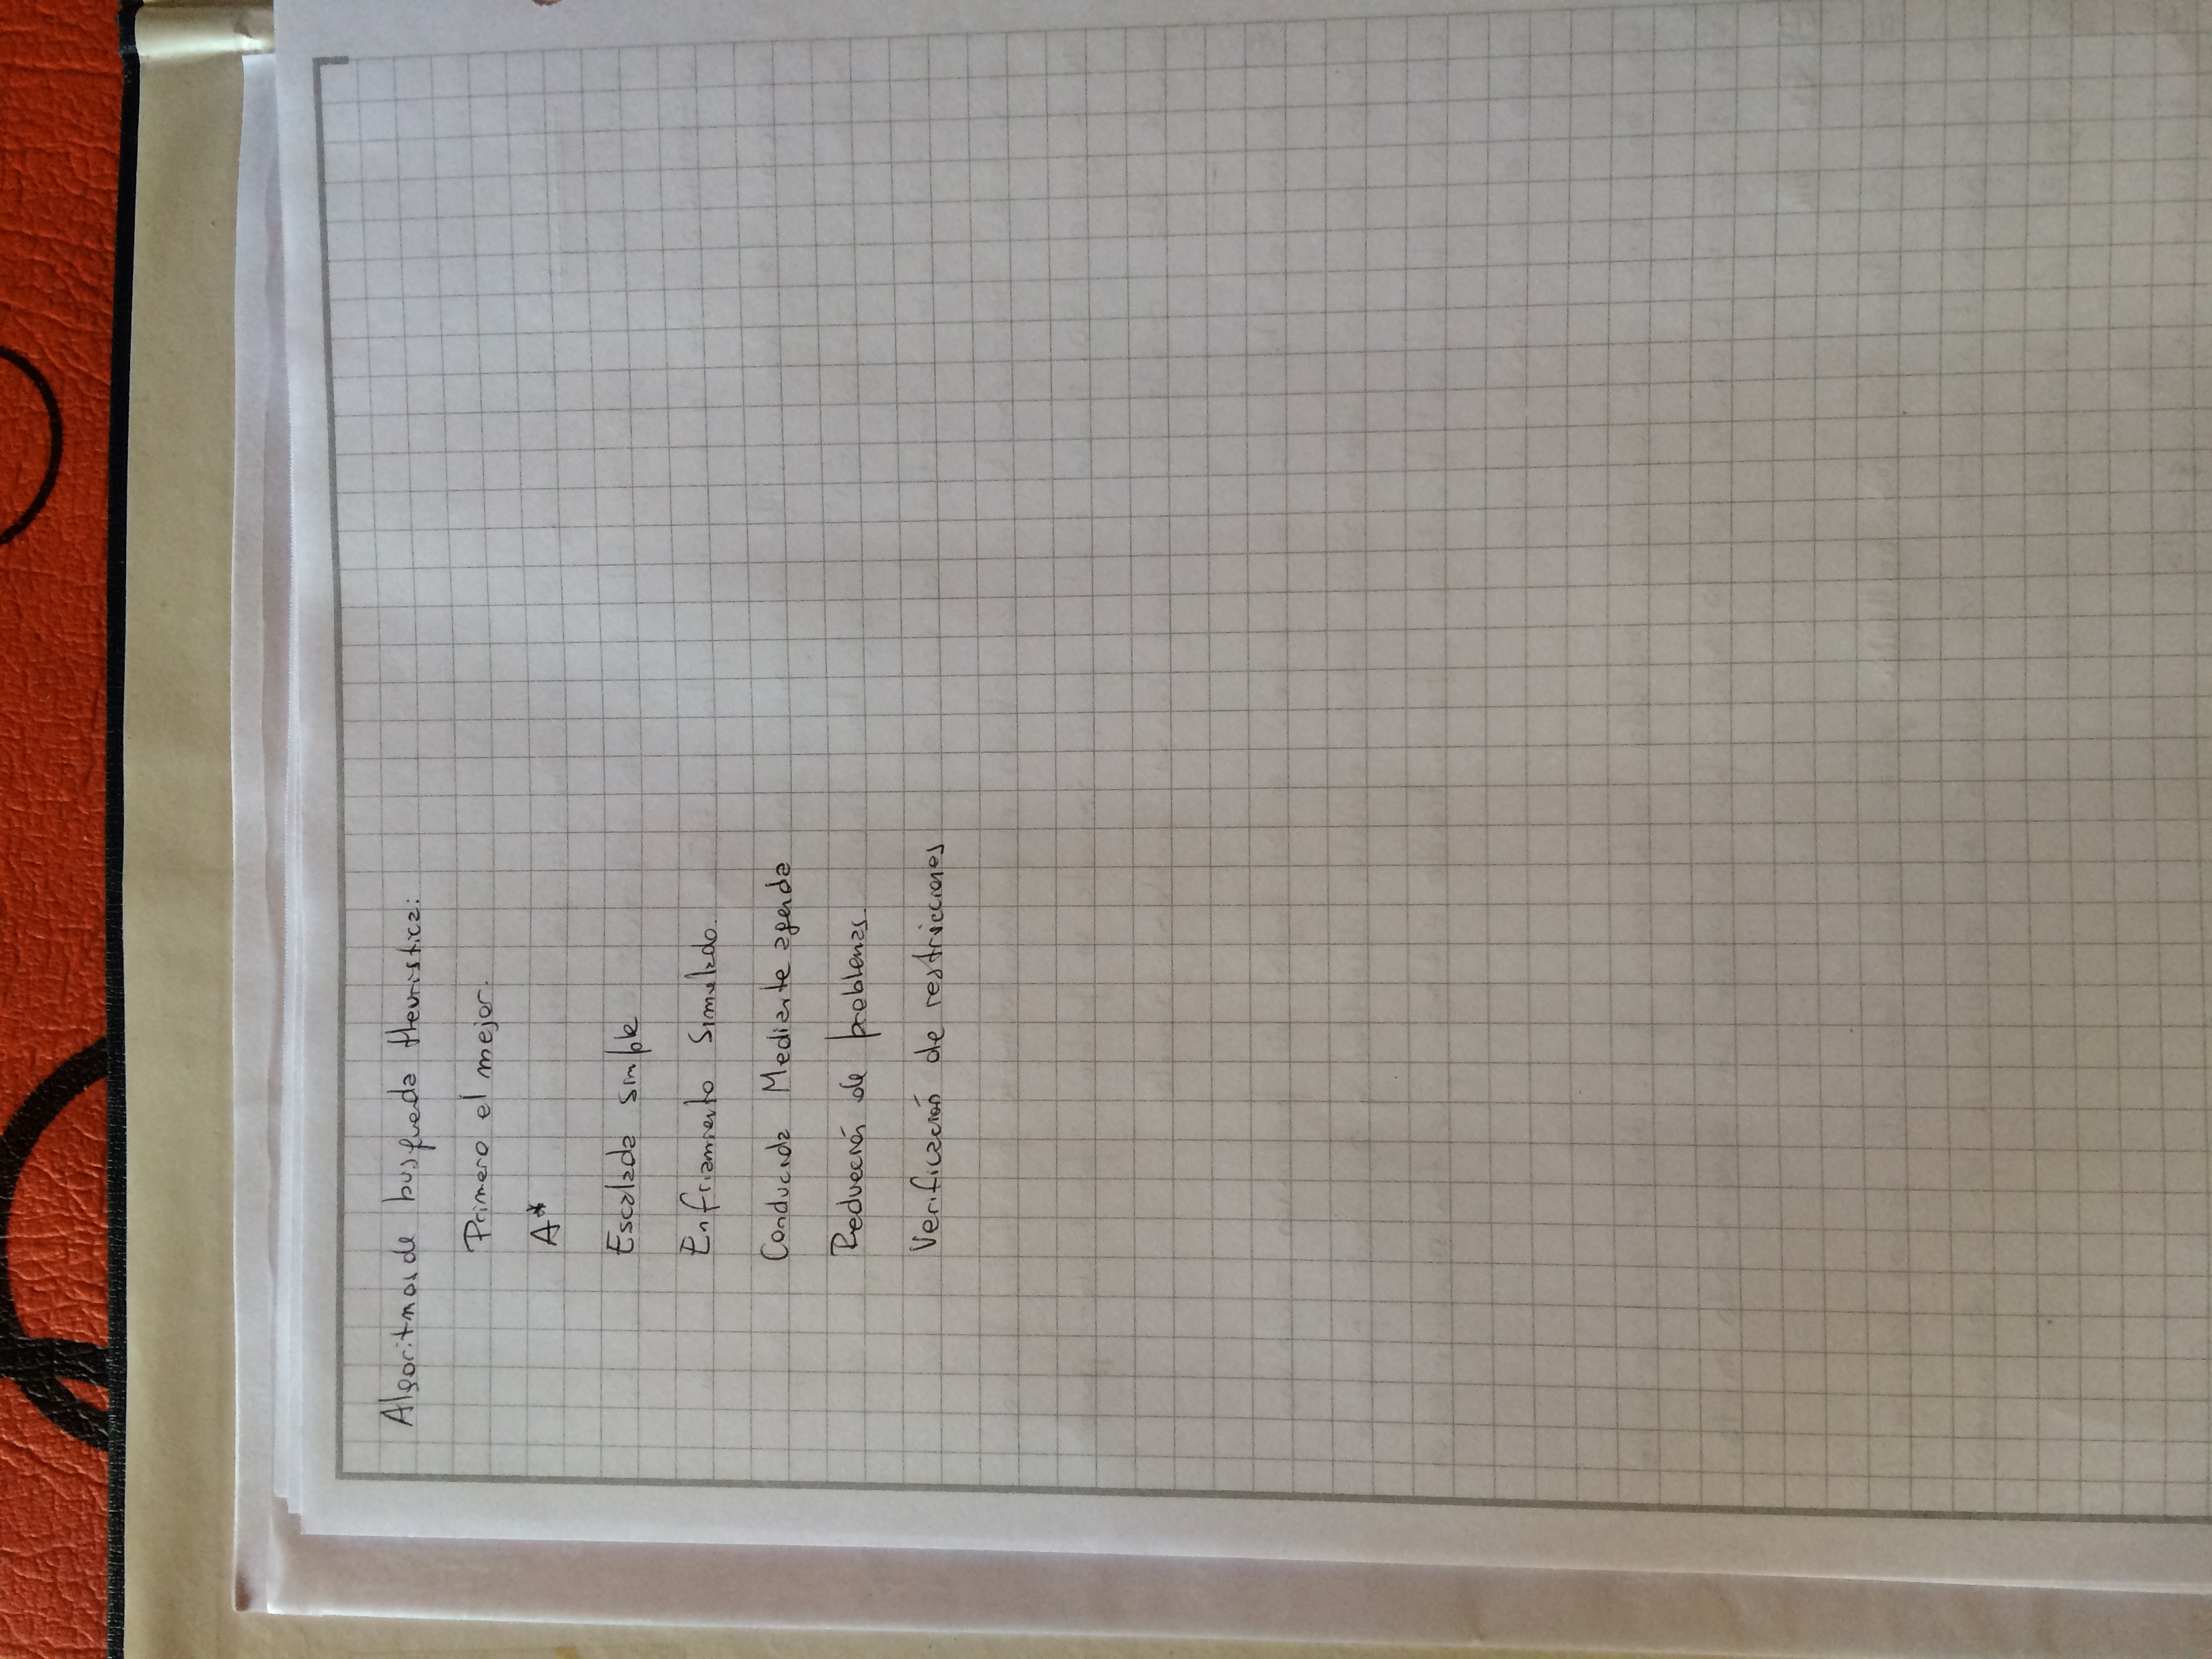 Algoritmos de busqueda Heuristica:
Primero el mejor.
A*
Escalada simple
Enfriamiento Simulado.
Conducida Mediante agenda
Reducción de problemas.
Verificación de restricciones